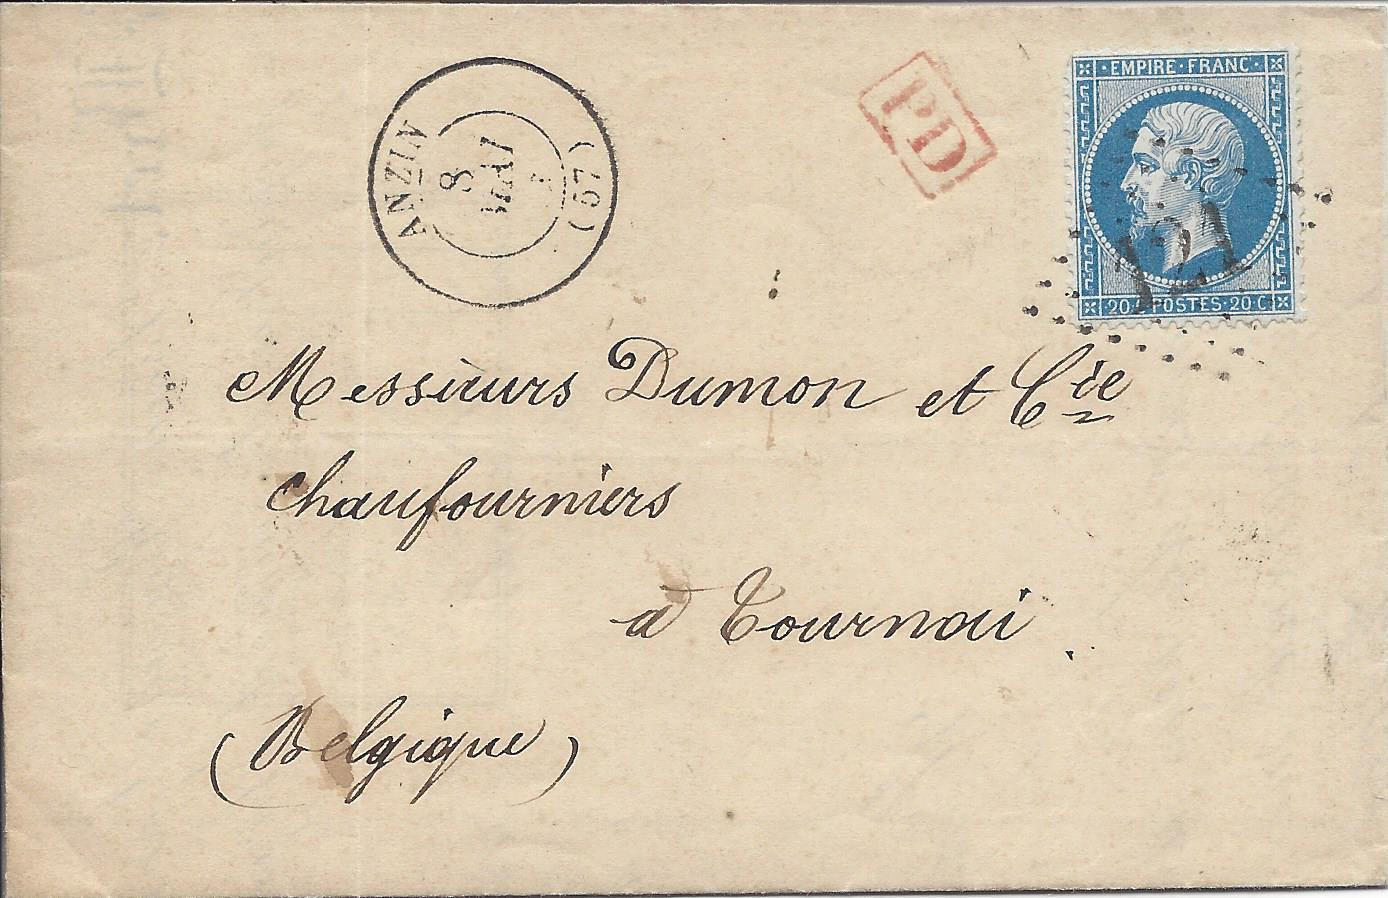 ANZIN (57)
8
MAI
PD
EMPIRE·FRANC·
121
20 C POSTES·20 C
Messieurs Dumon et Cie
chaufourniers
à Tournai
(Belgique)